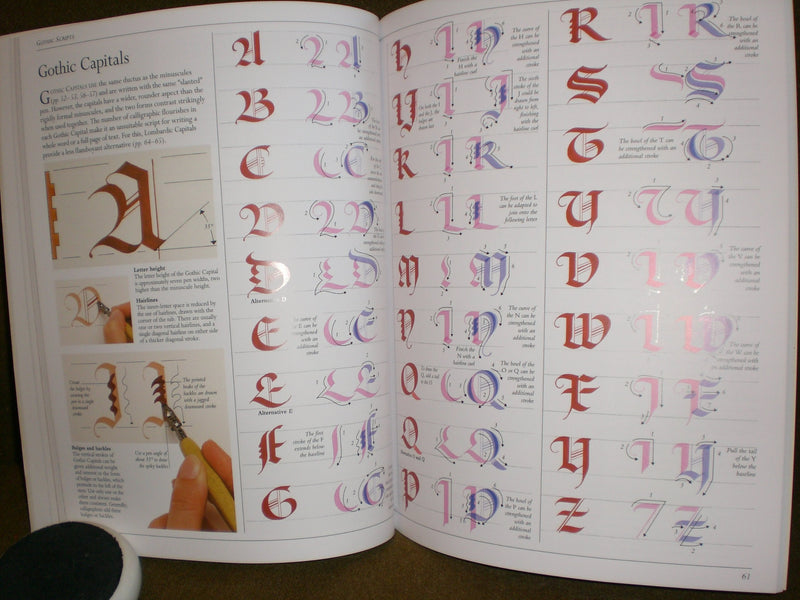 GOTHIC SCRIPTS
Gothic Capitals
GOTHIC CAPITALS USE the same ductus as the minuscules
(pp. 52–53, 56–57) and are written with the same "slanted"
pen. However, the capitals have a wider, rounder aspect than the
rigidly formal minuscules, and the two forms contrast strikingly
when used together. The number of calligraphic flourishes in
each Gothic Capital make it an unsuitable script for writing a
whole word or a full page of text. For this, Lombardic Capitals
provide a less flamboyant alternative (pp. 64–65).
35°
Letter height
The letter height of the Gothic Capital
is approximately seven pen widths, two
higher than the minuscule height.
Hairlines
The inner-letter space is reduced by
the use of hairlines, drawn with the
corner of the nib. There are usually
one or two vertical hairlines, and a
single diagonal hairline on either side
of a thicker diagonal stroke.
Create
the bulges by
twisting the
pen in a single
downward
stroke
The pointed
beaks of the
hackles are drawn
with a jagged
downward stroke
Bulges and hackles
The vertical strokes of
Gothic Capitals can be
given additional weight
and interest in the form
of bulges or hackles, which
protrude to the left of the
stem. Use only one or the
other and always make
them consistent. Generally,
calligraphers add three
bulges or hackles.
Use a pen angle of
about 35° to draw
the spiky hackles
A
B
C
D
D
Alternative D
E
be
strengthened
with an
additional
stroke
E
Alternative E
F
The first
stroke of the F
extends below
the baseline
G
H
Finish the
H with a
hairline curl
The curve of
the H can be
strengthened
with an
additional
stroke
I J
On both the I
and the J, the
The sixth
stroke of the
J could be
drawn from
right to left,
finishing
with the
hairline curl
K
L
The foot of the L
can be adapted to
join onto the
following letter
M
N
Finish the
N with a
hairline curl
The curve of
the N can be
strengthened
with an
additional
stroke
O
The bowl of the
O or Q can be
strengthened
with an
additional
stroke
Q
P
The bowl of
the P can be
strengthened
with an
additional
stroke
R
The bowl of
the R, can be
strengthened
with an
additional
stroke
S
T
The bowl of the T can
be strengthened with an
additional stroke
U
V
The curve of
the V can be
strengthened
with an
additional
stroke
W
The curve of
the W can be
strengthened
with an
additional
stroke
X
Y
Pull the tail
of the Y
below the
baseline
Z
61